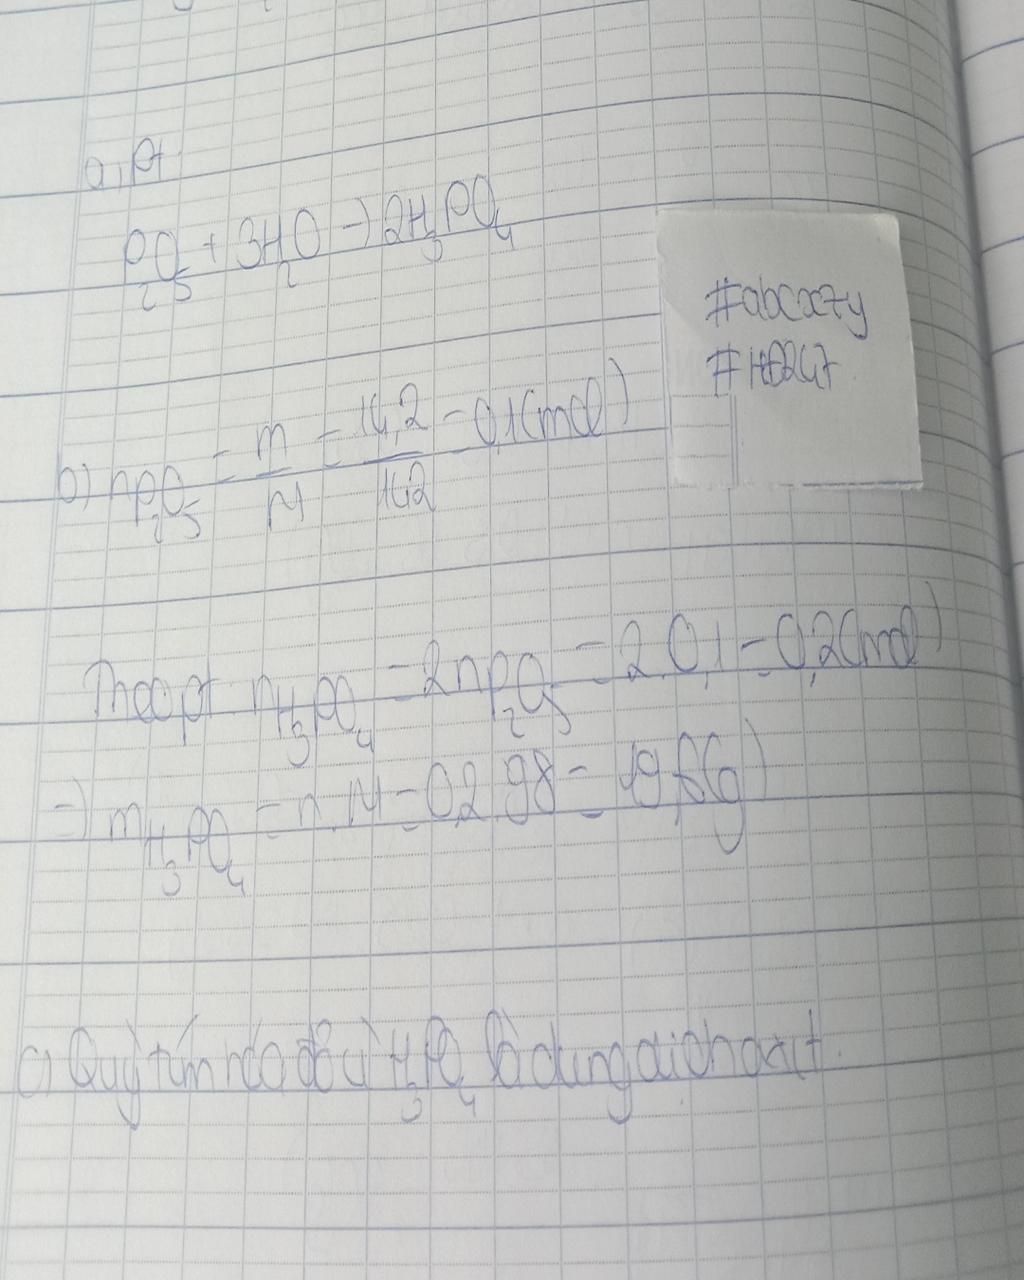 a, Pt
P2O5 + 3H2O → 2H3PO4
#abcxzy
#H0247
b) nP2O5 = m/M = 14,2/142 = 0,1(mol)
Theo pt nH3PO4 = 2nP2O5 = 2.0,1 = 0,2(mol)
=) mH3PO4 = n.M = 0,2.98 = 19,6(g)
c) Quỳ tím hóa đỏ vì H3PO4 là dung dịch axit.